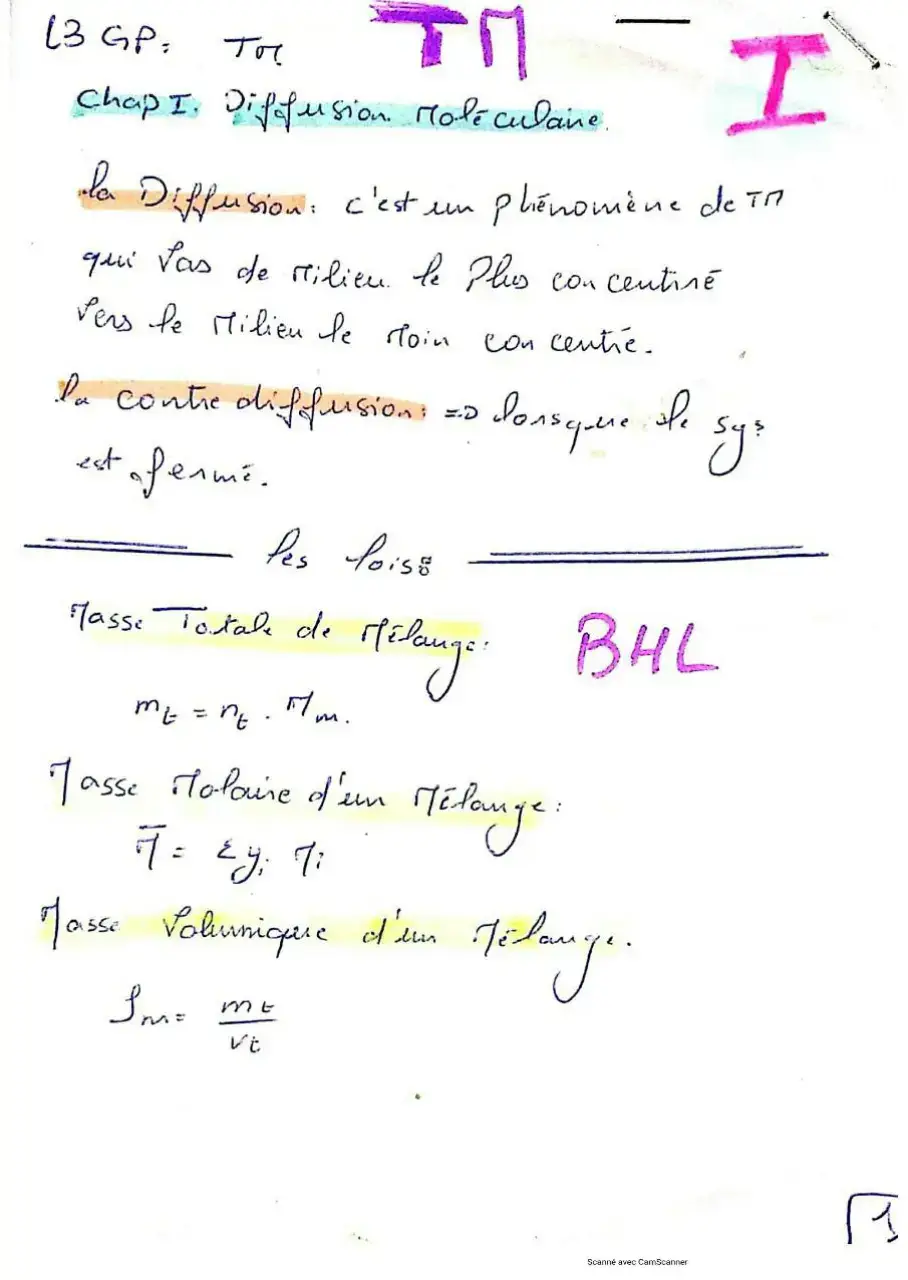 L3 GP: TM TM I
Chap I. Diffusion Moléculaire.
la Diffusion: c'est un phénomène de TM
qui Vas de Milieu le Plus concentré
Vers le Milieu le Moin concentré.
la contre diffusion: => lorsque le sys
est fermé.
les lois:
Masse Totale de Mélange:
BHL
mt = nt . Mm.
Masse Molaire d'un Mélange:
M̅ = Σ yi Mi
Masse Volumique d'un Mélange.
ρm = mt / Vt
1
Scanné avec CamScanner